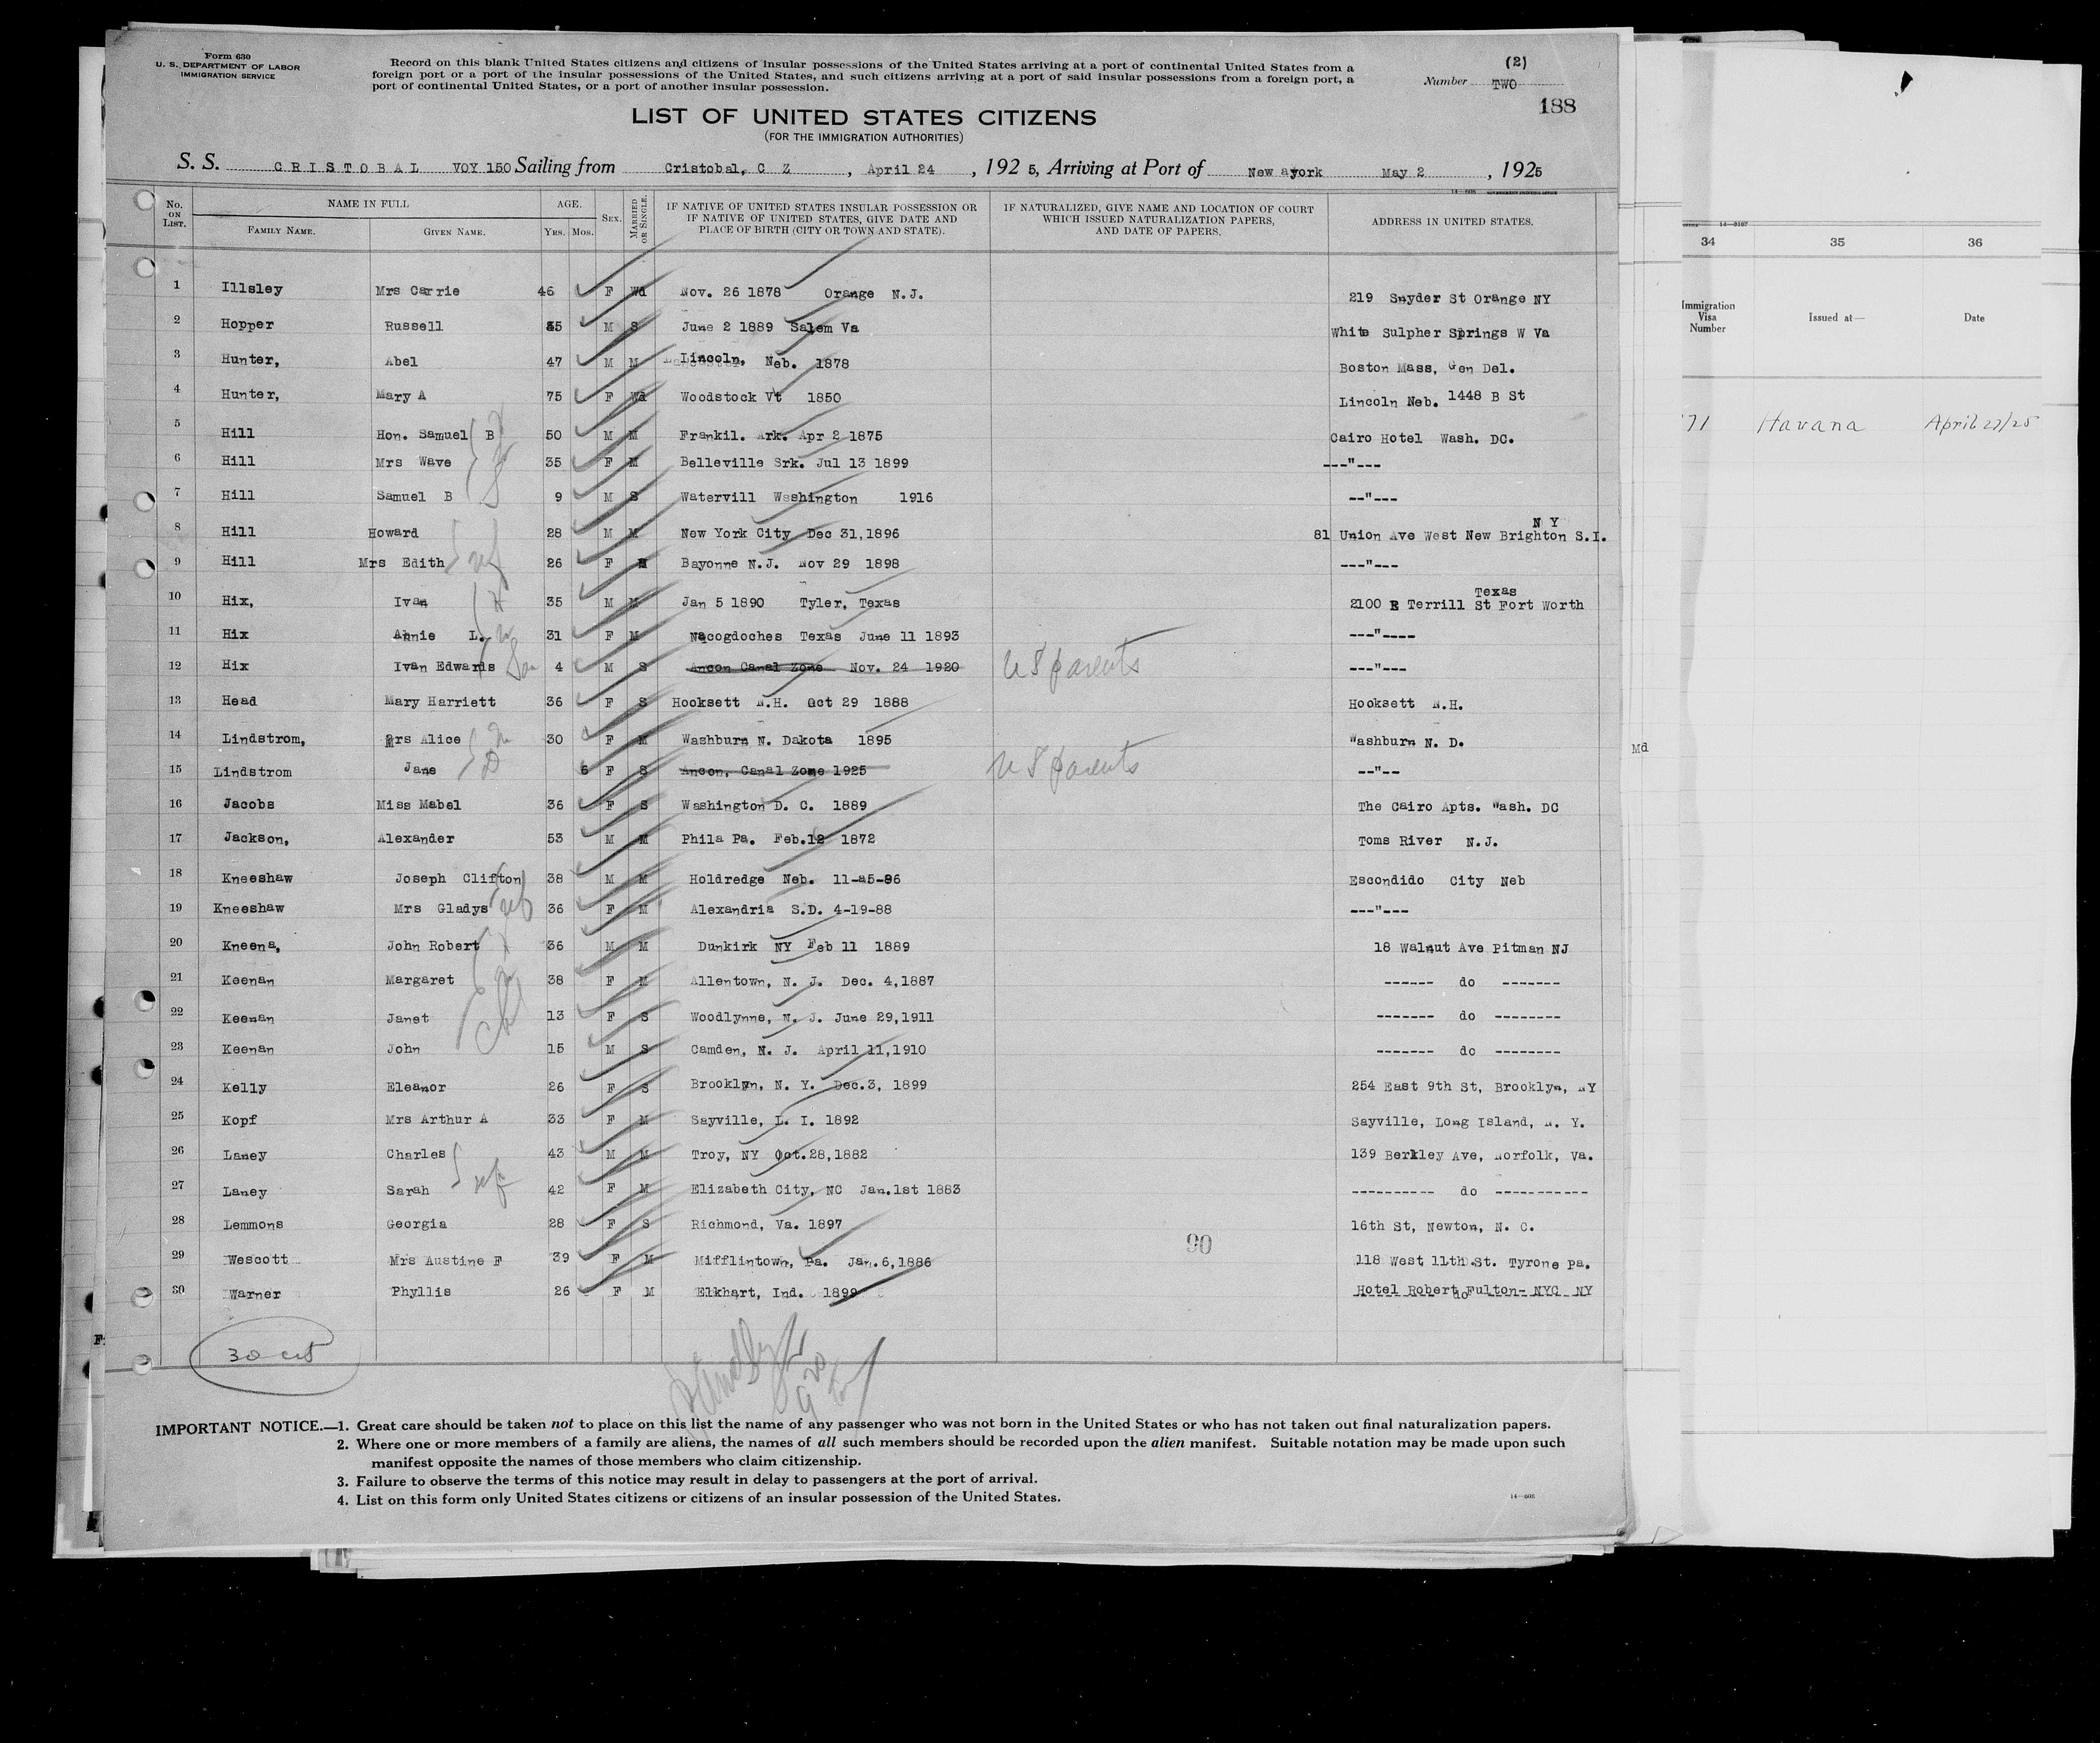 Form 630
U. S. DEPARTMENT OF LABOR
IMMIGRATION SERVICE
Record on this blank United States citizens and citizens of insular possessions of the United States arriving at a port of continental United States from a
foreign port or a port of the insular possessions of the United States, and such citizens arriving at a port of said insular possessions from a foreign port, a
port of continental United States, or a port of another insular possession.
(2)
Number TWO
188
LIST OF UNITED STATES CITIZENS
(FOR THE IMMIGRATION AUTHORITIES)
S. S. CRISTOBAL VOY 150 Sailing from Cristobal, C Z , April 24 , 192 5, Arriving at Port of New york May 2 , 1925
No. ON LIST. NAME IN FULL FAMILY NAME. GIVEN NAME. AGE. YRS. MOS. SEX. MARRIED OR SINGLE. IF NATIVE OF UNITED STATES INSULAR POSSESSION OR IF NATIVE OF UNITED STATES, GIVE DATE AND PLACE OF BIRTH (CITY OR TOWN AND STATE). IF NATURALIZED, GIVE NAME AND LOCATION OF COURT WHICH ISSUED NATURALIZATION PAPERS, AND DATE OF PAPERS. ADDRESS IN UNITED STATES.
1 Illsley Mrs Carrie 46 F Wd Nov. 26 1878 Orange N.J. 219 Snyder St Orange NY
2 Hopper Russell 35 M S June 2 1889 Salem Va White Sulpher Springs W Va
3 Hunter, Abel 47 M M Lincoln, Neb. 1878 Boston Mass, Gen Del.
4 Hunter, Mary A 75 F Wd Woodstock Vt 1850 Lincoln Neb. 1448 B St
5 Hill Hon. Samuel B 50 M M Frankil. Ark. Apr 2 1875 Cairo Hotel Wash. DC.
6 Hill Mrs Wave 35 F M Belleville Srk. Jul 13 1899 ---"---
7 Hill Samuel B 9 M S Watervill Washington 1916 --"---
8 Hill Howard 28 M M New York City Dec 31,1896 81 Union Ave West New Brighton S.I. N Y
9 Hill Mrs Edith 26 F M Bayonne N.J. Nov 29 1898 ---"---
10 Hix, Ivan 35 M M Jan 5 1890 Tyler, Texas 2100 E Terrill St Fort Worth Texas
11 Hix Annie L. 31 F M Nacogdoches Texas June 11 1893 ---"----
12 Hix Ivan Edwards 4 M S Ancon Canal Zone Nov. 24 1920 U S parents ---"---
13 Head Mary Harriett 36 F S Hooksett N.H. Oct 29 1888 Hooksett N.H.
14 Lindstrom, Mrs Alice 30 F M Washburn N. Dakota 1895 Washburn N. D.
15 Lindstrom Jane 6 F S Ancon, Canal Zone 1925 U S parents --"--
16 Jacobs Miss Mabel 36 F S Washington D. C. 1889 The Cairo Apts. Wash. DC
17 Jackson, Alexander 53 M M Phila Pa. Feb.12 1872 Toms River N.J.
18 Kneeshaw Joseph Clifton 38 M M Holdredge Neb. 11-a5-86 Escondido City Neb
19 Kneeshaw Mrs Gladys 36 F M Alexandria S.D. 4-19-88 ---"---
20 Kneena, John Robert 36 M M Dunkirk NY Feb 11 1889 18 Walnut Ave Pitman NJ
21 Keenan Margaret 38 F M Allentown, N. J. Dec. 4,1887 ------ do -------
22 Keenan Janet 13 F S Woodlynne, N. J. June 29,1911 ------- do --------
23 Keenan John 15 M S Camden, N. J. April 11,1910 ------- do --------
24 Kelly Eleanor 26 F S Brooklyn, N. Y. Dec.3, 1899 254 East 9th St, Brooklyn, NY
25 Kopf Mrs Arthur A 33 F M Sayville, L. I. 1892 Sayville, Long Island, N. Y.
26 Laney Charles 43 M M Troy, NY Oct.28,1882 139 Berkley Ave, Norfolk, Va.
27 Laney Sarah 42 F M Elizabeth City, NC Jan.1st 1883 ---------- do -----------
28 Lemmons Georgia 28 F S Richmond, Va. 1897 16th St, Newton, N. C.
29 Wescott Mrs Austine F 39 F M Mifflintown, Pa. Jan.6,1886 90 118 West 11th.St. Tyrone Pa.
30 Warner Phyllis 26 F M Elkhart, Ind. 1899 Hotel Robert Fulton- NYC NY
30 cit
IMPORTANT NOTICE.—1. Great care should be taken not to place on this list the name of any passenger who was not born in the United States or who has not taken out final naturalization papers.
2. Where one or more members of a family are aliens, the names of all such members should be recorded upon the alien manifest. Suitable notation may be made upon such
manifest opposite the names of those members who claim citizenship.
3. Failure to observe the terms of this notice may result in delay to passengers at the port of arrival.
4. List on this form only United States citizens or citizens of an insular possession of the United States.
14—608
Md
34 35 36
Immigration Visa Number Issued at— Date
71 Havana April 27/25